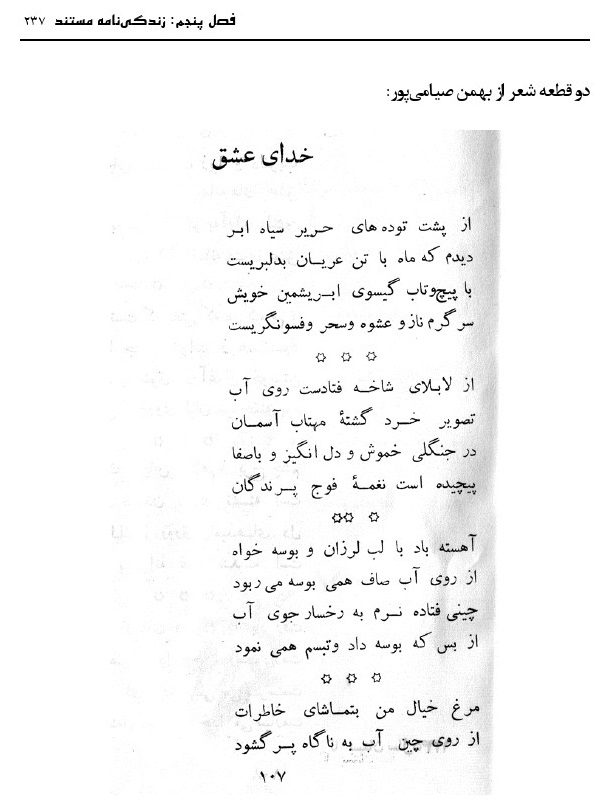 فصل پنجم: زندگی‌نامه مستند ۲۳۷
دو قطعه شعر از بهمن صیامی‌پور:
خدای عشق
از پشت توده های حریر سیاه ابر
دیدم که ماه با تن عریان بدلبریست
با پیچ‌وتاب گیسوی ابریشمین خویش
سرگرم ناز و عشوه وسحر وفسونگریست
از لابلای شاخه فتادست روی آب
تصویر خرد گشتهٔ مهتاب آسمان
در جنگلی خموش و دل انگیز و باصفا
پیچیده است نغمهٔ فوج پرندگان
آهسته باد با لب لرزان و بوسه خواه
از روی آب صاف همی بوسه می ربود
چینی فتاده نرم به رخسار جوی آب
از بس که بوسه داد وتبسم همی نمود
مرغ خیال من بتماشای خاطرات
از روی چین آب به ناگاه پر گشود
۱۰۷